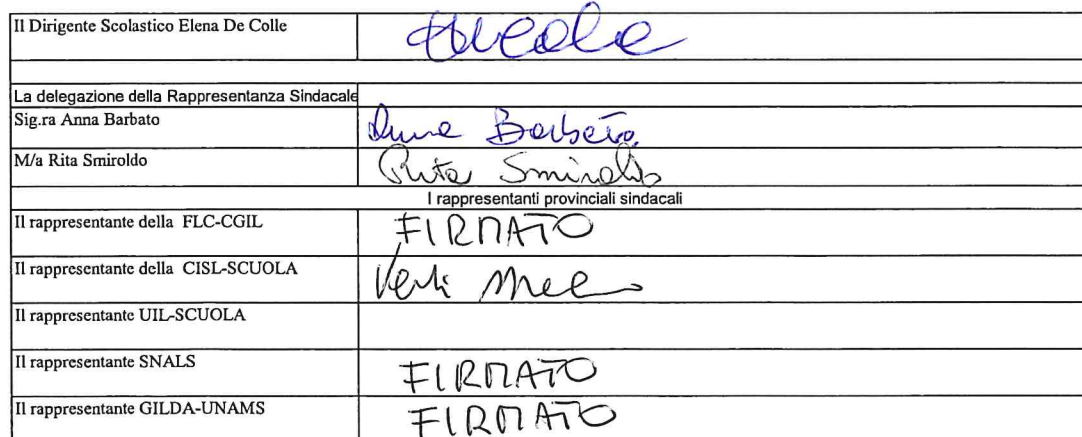 Il Dirigente Scolastico Elena De Colle
La delegazione della Rappresentanza Sindacale
Sig.ra Anna Barbato Anna Barbato
M/a Rita Smiroldo Rita Smiroldo
I rappresentanti provinciali sindacali
Il rappresentante della FLC-CGIL FIRMATO
Il rappresentante della CISL-SCUOLA
Il rappresentante UIL-SCUOLA
Il rappresentante SNALS FIRMATO
Il rappresentante GILDA-UNAMS FIRMATO